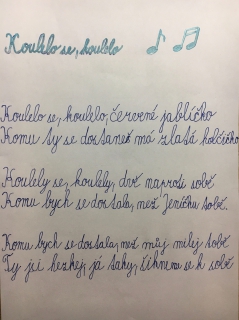 Koulelo se, koulelo
Koulelo se, koulelo, červené jablíčko
Komu ty se dostaneš má zlatá holčičko
Koulely se, koulely, dvě naproti sobě
Komu bych se dostala, než Jeníčku tobě.
Komu bych se dostala, než můj milej tobě
Ty jsi hezkej, já taky, šiknem se k sobě